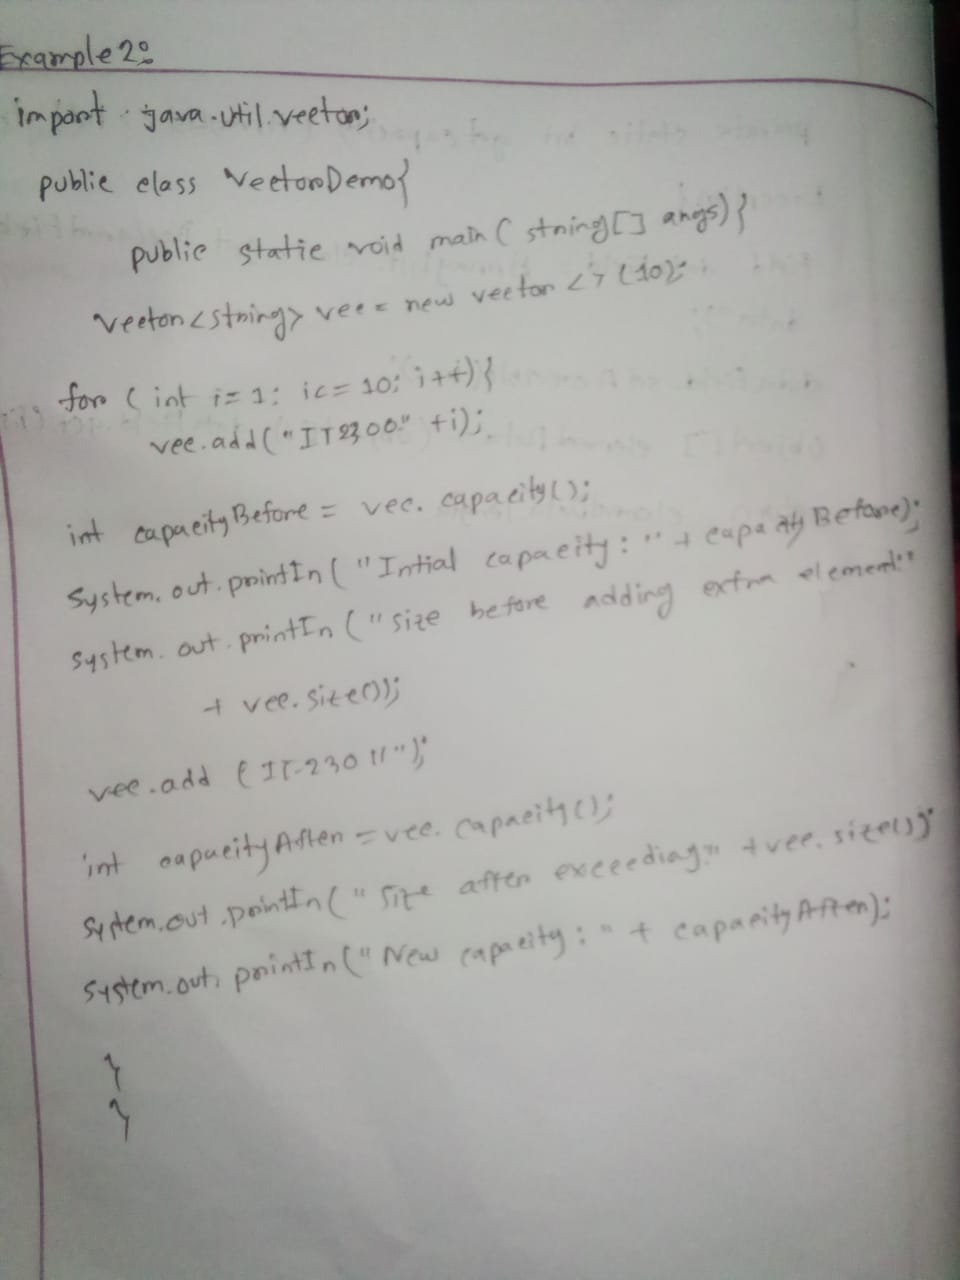 Example 2:
import java.util.vector;
public class VectorDemo{
public static void main ( string[] args) {
Vector<string> vec = new vector <> (10);
for ( int i= 1; i<= 10; i++) {
vec.add("IT2300" +i);
int capacityBefore = vec. capacity();
System. out. println ( "Intial capacity : " + capacity Before);
System. out. println ( "size before adding extra element:"
+ vec. size());
vec .add (IT-23011");
int capacityAfter = vec. capacity();
System.out .println( "Size after exceeding:" + vec. size());
System.out. println("New capacity : " + capacity After);
}
}